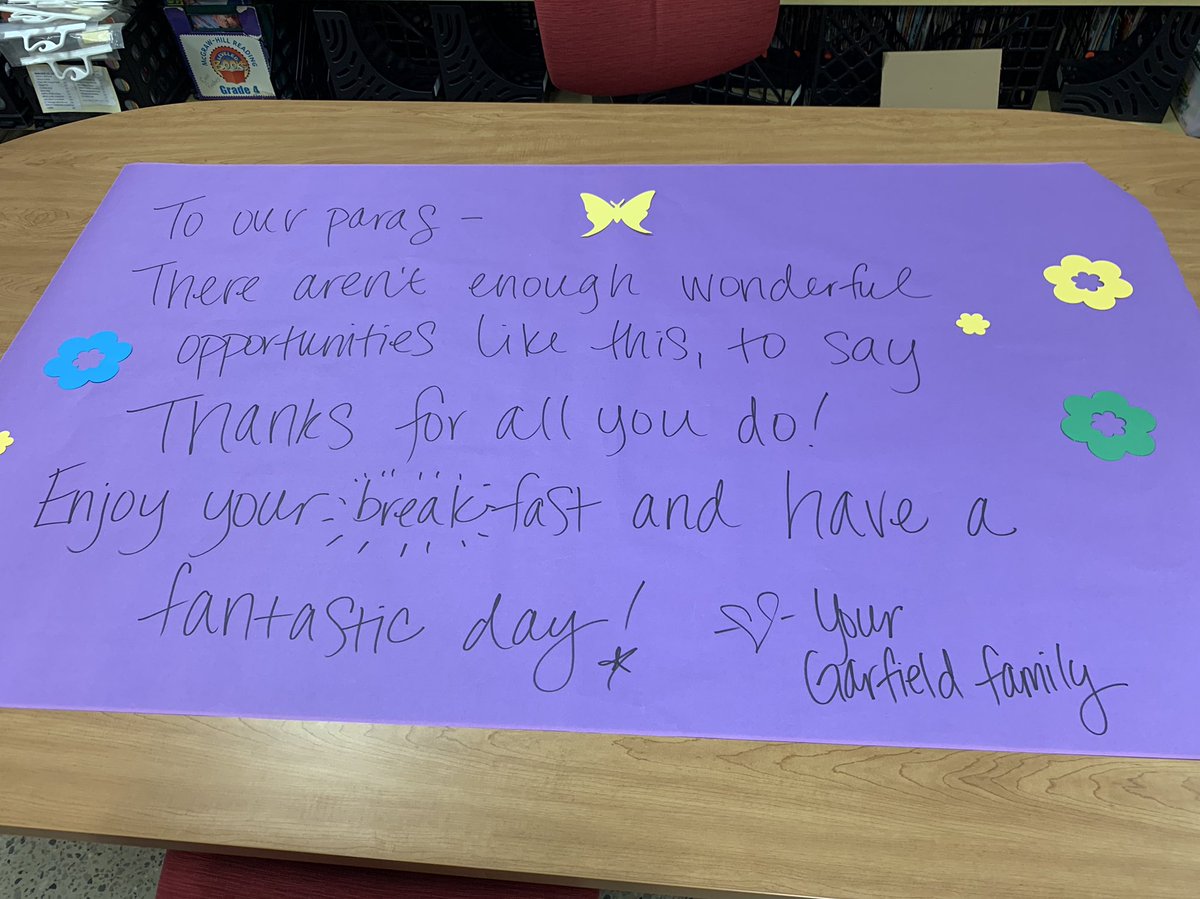 McGRAW-HILL READING
Grade 4
To our paras -
There aren't enough wonderful
opportunities like this, to say
Thanks for all you do!
Enjoy your breakfast and have a
fantastic day!
- Your
Garfield family